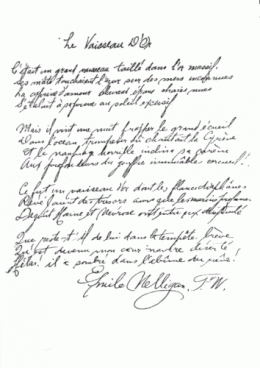 Le Vaisseau D'Or
C'était un grand vaisseau taillé dans l'or massif.
Ses mâts touchaient l'azur sur des mers inconnues
La cyprine d'amour cheveux épars chairs nues
S'étalait à sa proue au soleil excessif
Mais il vint une nuit frapper le grand écueil
Dans l'océan trompeur où chantait la Sirène
Et le naufrage horrible inclina sa carène
Aux profondeurs du gouffre immuable cercueil!
Ce fut un vaisseau d'or dont les flancs diaphanes
Révélaient des trésors que les marins profanes
Dégoût Haine et Névrose ont entre eux disputé
Que reste-t-il de lui dans la tempête brève
Qu'est devenu mon coeur navire déserté
Hélas! il a sombré dans l'abîme du rêve!
Emile Nelligan